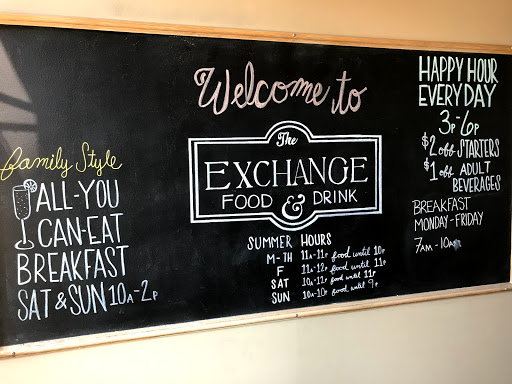 Welcome to
The
EXCHANGE
FOOD & DRINK
SUMMER HOURS
M-TH 11A-11P food until 10P
F 11A-12P food until 11P
SAT 10A-11P food until 11P
SUN 10A-10P food until 9P
Family Style
ALL-YOU
CAN-EAT
BREAKFAST
SAT & SUN 10A-2P
HAPPY HOUR
EVERY DAY
3P-6P
$2 off STARTERS
$1 off ADULT
BEVERAGES
BREAKFAST
MONDAY-FRIDAY
7AM-10AM